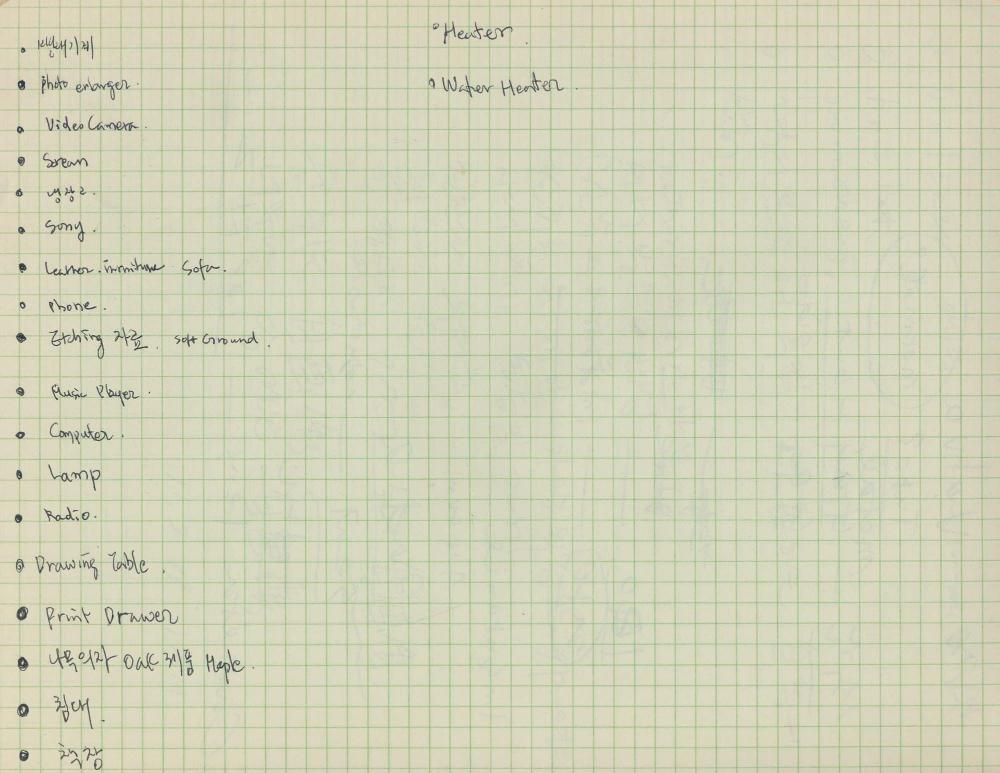 Photo enlarger.
Video Camera.
Screan
냉장고.
Sony.
Leather. furniture Sofa.
Phone.
Etching 자료. Soft Ground.
Music Player.
Computer.
Lamp
Radio.
Drawing Table.
Print Drawer
나무의자 Oak 제품 Maple.
침대.
책장
Heater.
Water Heater.